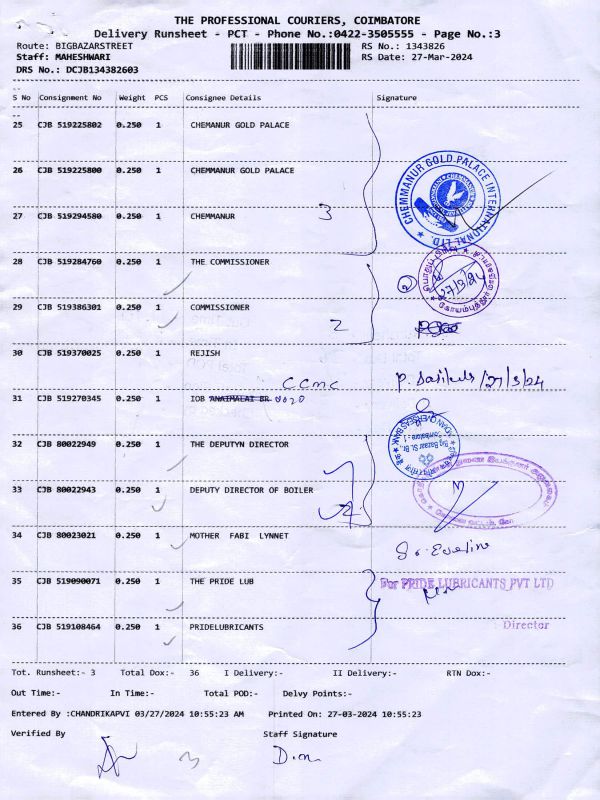 THE PROFESSIONAL COURIERS, COIMBATORE
Delivery Runsheet - PCT - Phone No.:0422-3505555 - Page No.:3
Route: BIGBAZARSTREET RS No.: 1343826
Staff: MAHESHWARI RS Date: 27-Mar-2024
DRS No.: DCJB134382603
S No Consignment No Weight PCS Consignee Details Signature
25 CJB 519225802 0.250 1 CHEMANUR GOLD PALACE
26 CJB 519225800 0.250 1 CHEMMANUR GOLD PALACE
CHEMMANUR GOLD PALACE INTERNATIONAL LTD
27 CJB 519294580 0.250 1 CHEMMANUR 3
28 CJB 519284760 0.250 1 THE COMMISSIONER
27/3/24
29 CJB 519386301 0.250 1 COMMISSIONER 2
30 CJB 519370025 0.250 1 REJISH
CCMC 27/3/24
31 CJB 519270345 0.250 1 IOB ANAIMALAI BR
INDIAN OVERSEAS BANK
Big Bazaar St., Br.
Coimbatore - 1
32 CJB 80022949 0.250 1 THE DEPUTYN DIRECTOR
33 CJB 80022943 0.250 1 DEPUTY DIRECTOR OF BOILER
34 CJB 80023021 0.250 1 MOTHER FABI LYNNET
35 CJB 519090071 0.250 1 THE PRIDE LUB For PRIDE LUBRICANTS PVT LTD
36 CJB 519108464 0.250 1 PRIDELUBRICANTS Director
Tot. Runsheet:- 3 Total Dox:- 36 I Delivery:- II Delivery:- RTN Dox:-
Out Time:- In Time:- Total POD:- Delvy Points:-
Entered By :CHANDRIKAPVI 03/27/2024 10:55:23 AM Printed On: 27-03-2024 10:55:23
Verified By Staff Signature